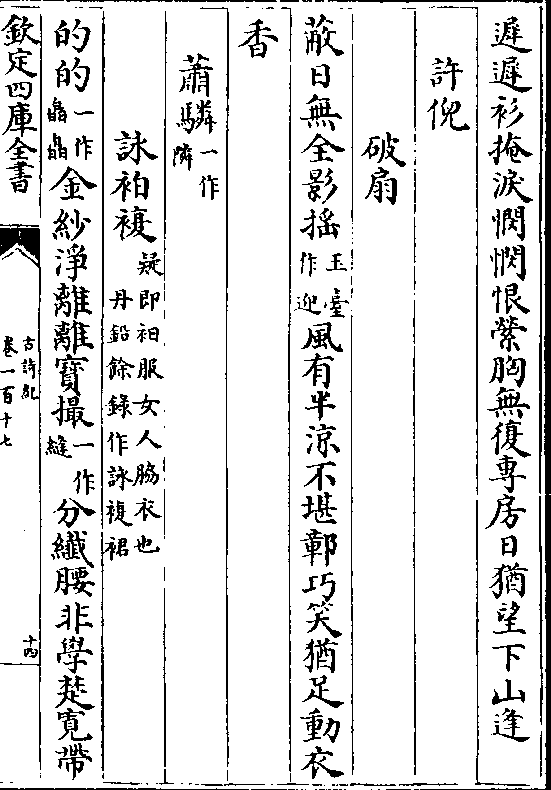 遲遲衫掩淚憫憫恨縈胸無復專房日猶望下山逢
許倪
破扇
蔽日無全影揺玉臺作迎風有半涼不堪鄣巧笑猶足動衣
香
蕭驎一作隣
詠袙複疑即袙服女人脇衣也丹鉛餘錄作詠複裙
的的一作皛皛金紗淨離離寶撮一作縫分纎腰非學楚寛帶
欽定四庫全書
古詩紀
卷一百十七
十四